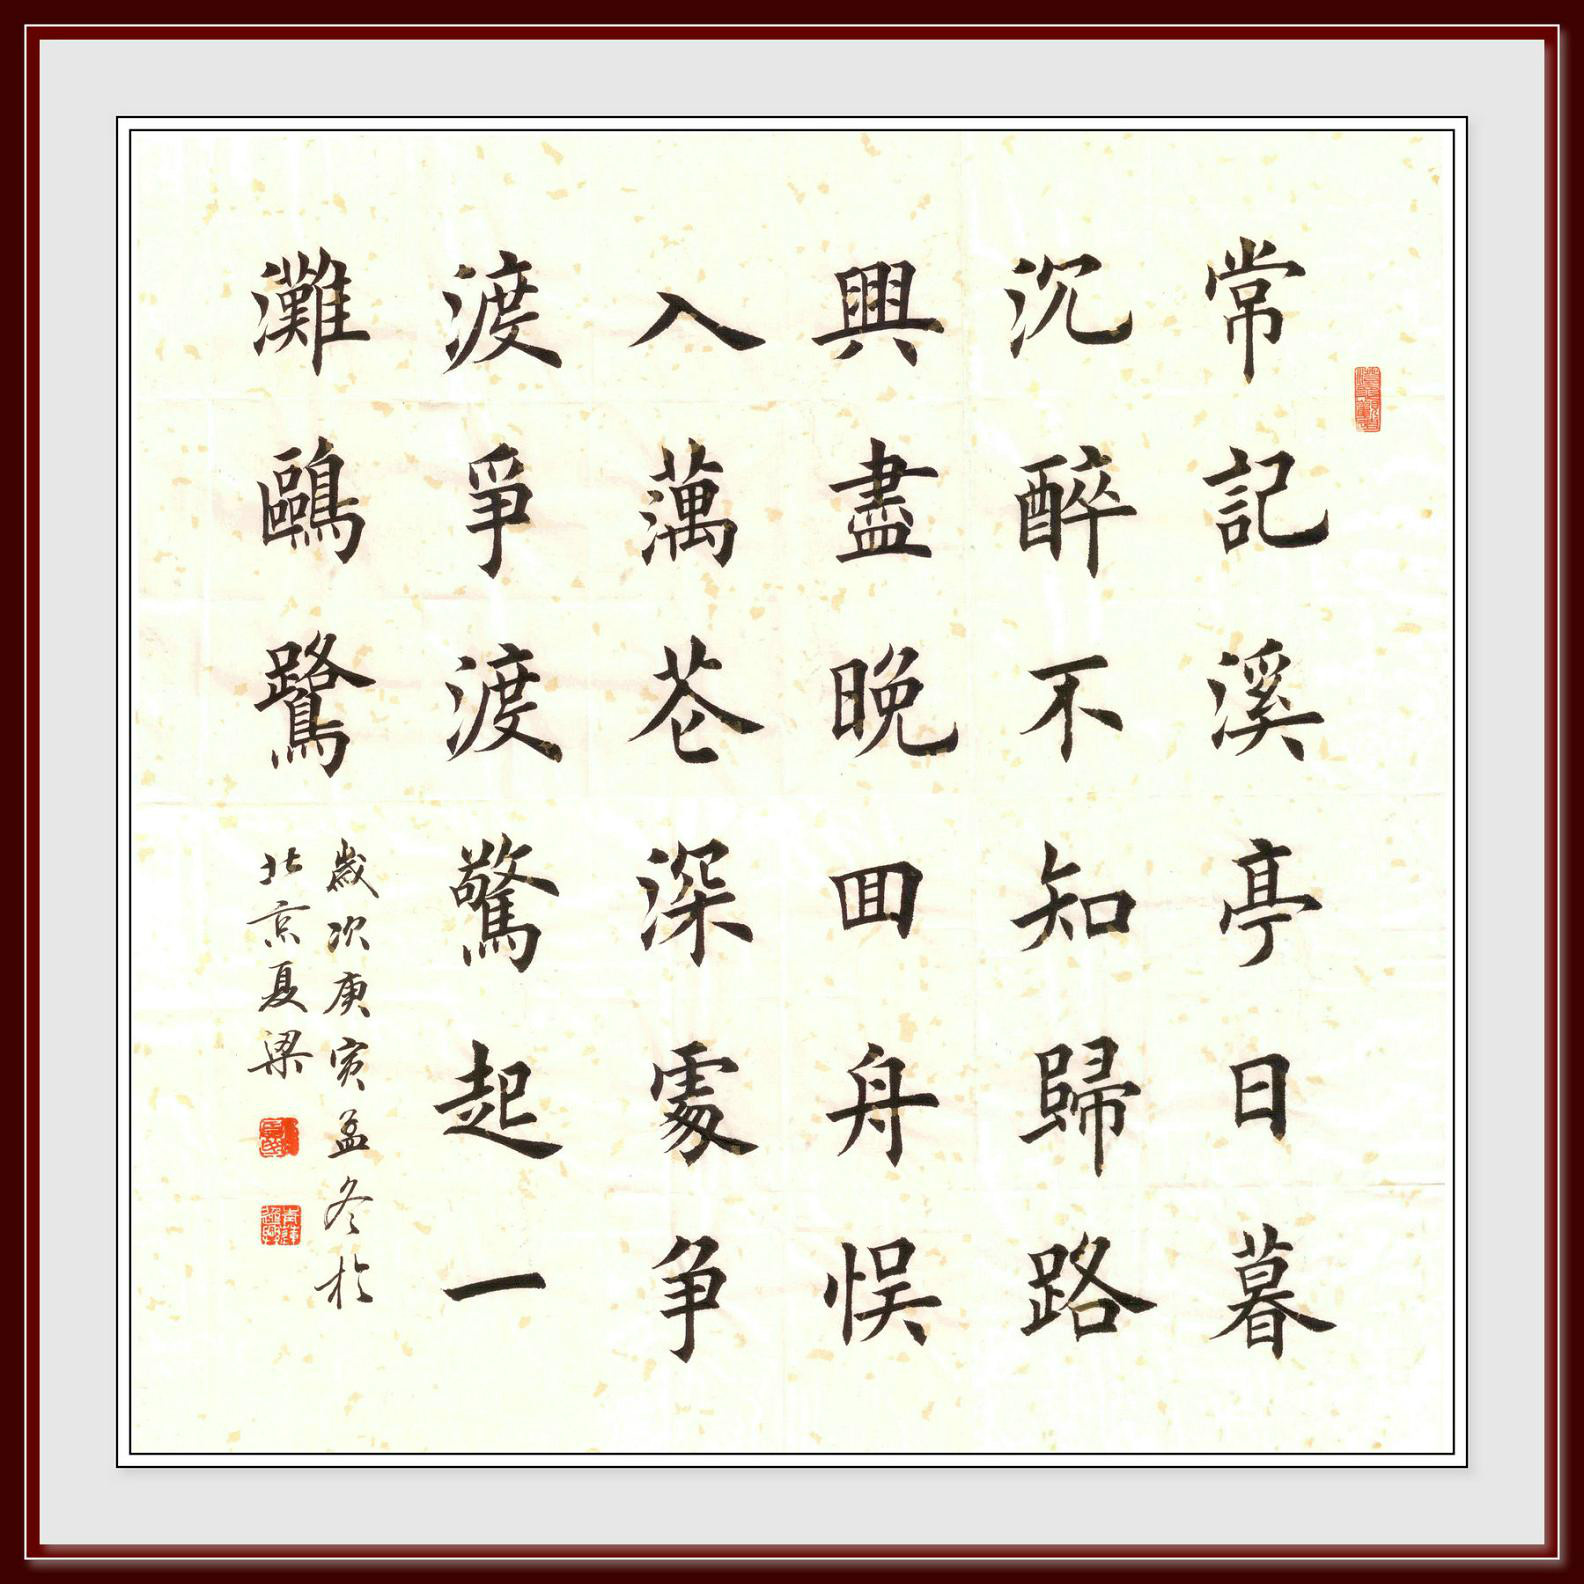 常記溪亭日暮
沉醉不知歸路
興盡晚回舟悮
入藕花深處争
渡爭渡驚起一
灘鷗鷺
歲次庚寅孟冬於
北京夏梁